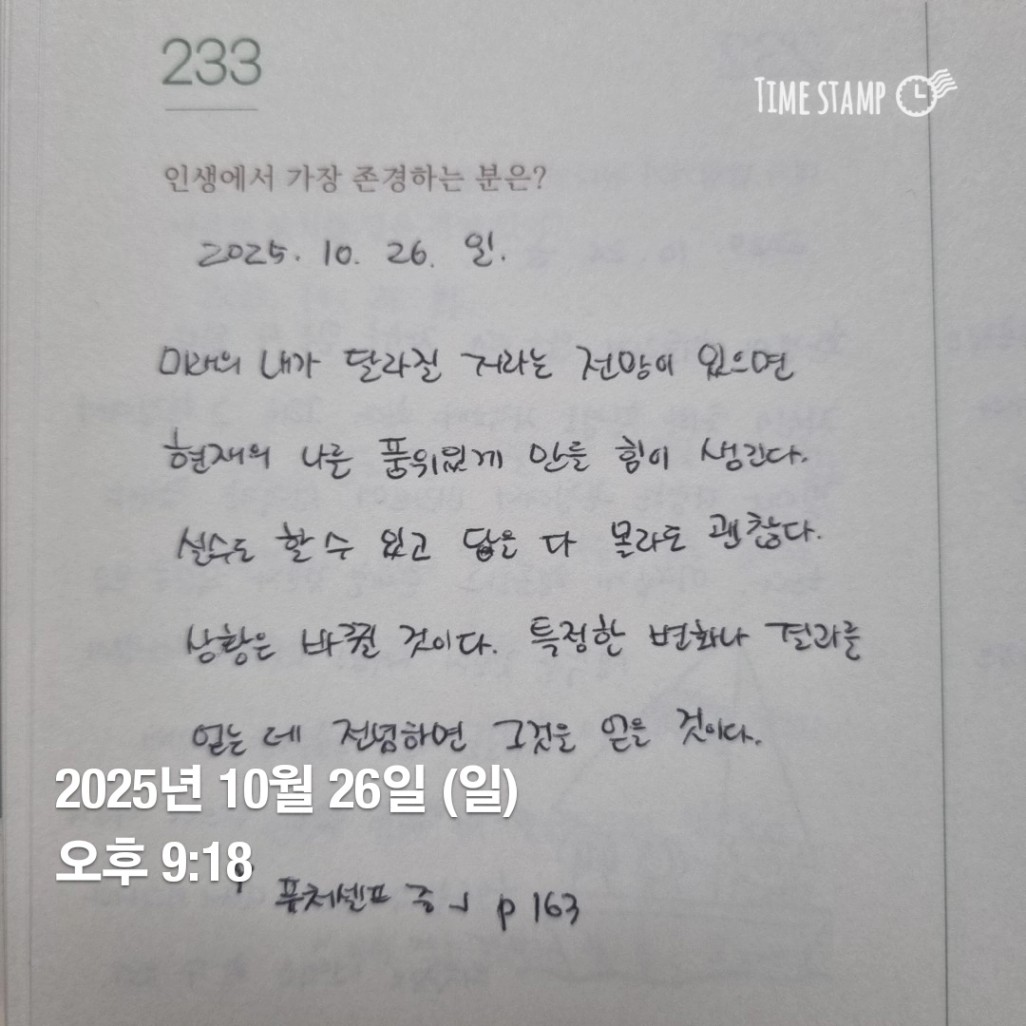 233
TIME STAMP
인생에서 가장 존경하는 분은?
2025. 10. 26. 일.
미래의 내가 달라질 거라는 전망이 있으면
현재의 나를 품위있게 만들 힘이 생긴다.
실수도 할 수 있고 답을 다 몰라도 괜찮다.
상황은 바뀔 것이다. 특정한 변화나 결과를
얻는 데 전념하면 그것을 얻을 것이다.
2025년 10월 26일 (일)
오후 9:18
「퓨처셀프 중」 p 163